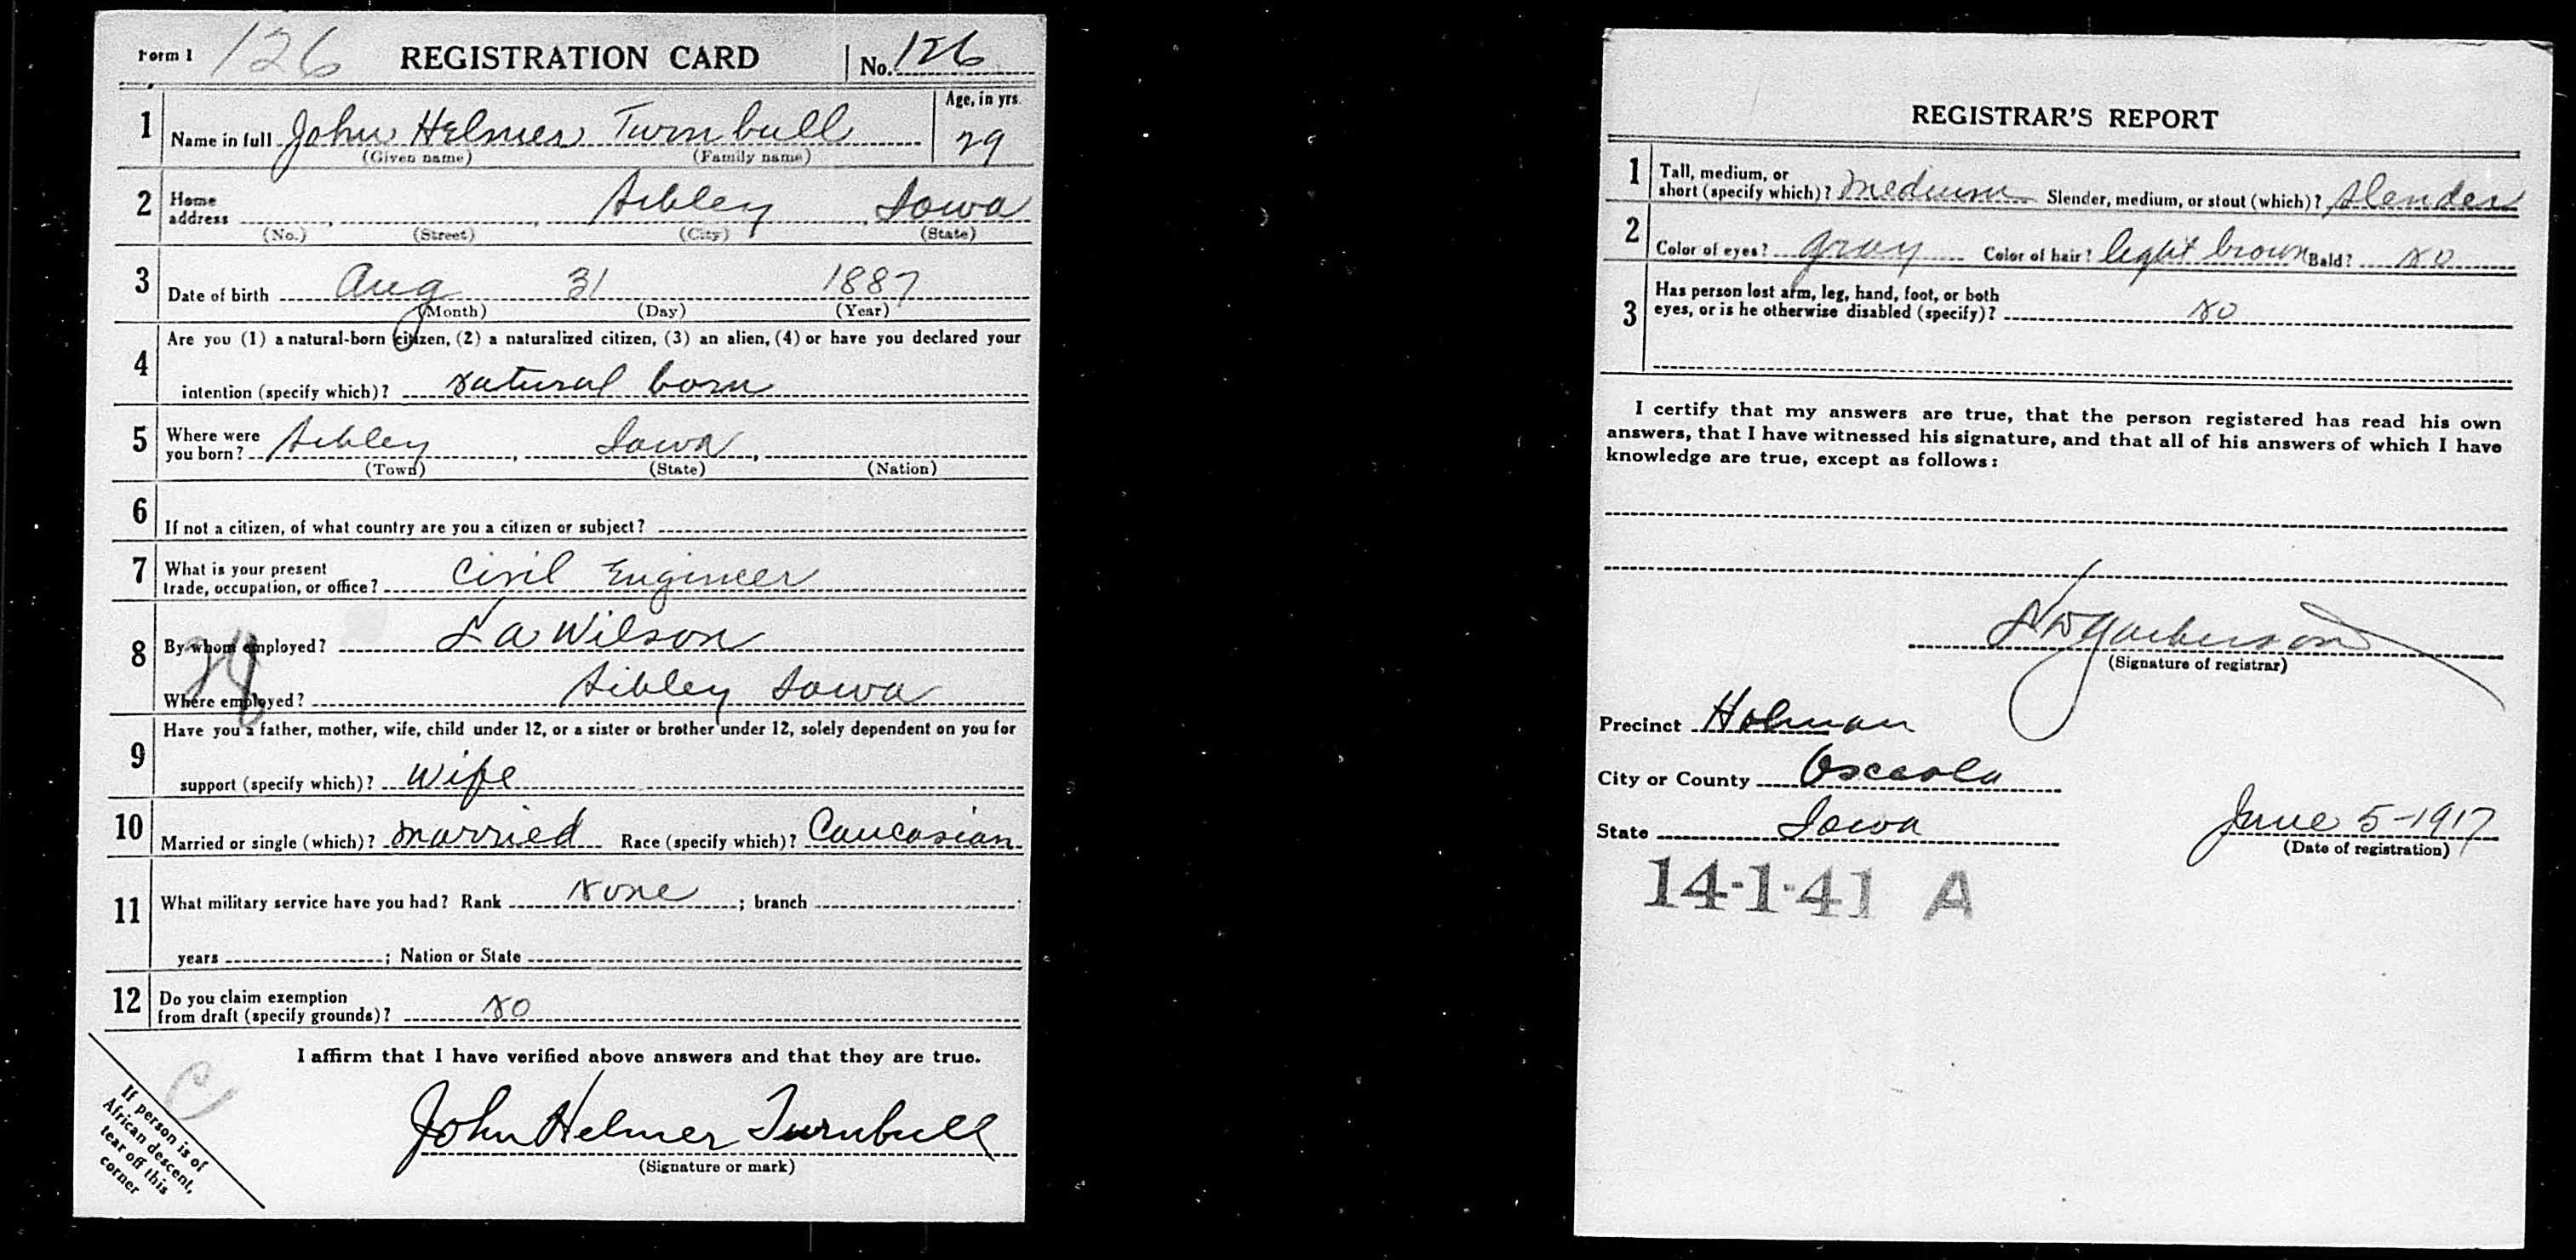 Form 1 126 REGISTRATION CARD No. 126
1 Name in full John Helmer Turnbull Age, in yrs. 29
(Given name) (Family name)
2 Home address Sibley, Iowa
(No.) (Street) (City) (State)
3 Date of birth Aug 31 1887
(Month) (Day) (Year)
4 Are you (1) a natural-born citizen, (2) a naturalized citizen, (3) an alien, (4) or have you declared your
intention (specify which)? natural born
5 Where were you born? Sibley, Iowa,
(Town) (State) (Nation)
6 If not a citizen, of what country are you a citizen or subject?
7 What is your present
trade, occupation, or office? Civil Engineer
8 By whom employed? L a Wilson
24
Where employed? Sibley Iowa
9 Have you a father, mother, wife, child under 12, or a sister or brother under 12, solely dependent on you for
support (specify which)? wife
10 Married or single (which)? married Race (specify which)? Caucasian
11 What military service have you had? Rank none ; branch
years ; Nation or State
12 Do you claim exemption
from draft (specify grounds)? no
I affirm that I have verified above answers and that they are true.
John Helmer Turnbull
(Signature or mark)
C
If person is of
African descent,
tear off this
corner
REGISTRAR'S REPORT
1 Tall, medium, or
short (specify which)? medium Slender, medium, or stout (which)? slender
2 Color of eyes? gray Color of hair? light brown Bald? no
3 Has person lost arm, leg, hand, foot, or both
eyes, or is he otherwise disabled (specify)? no
I certify that my answers are true, that the person registered has read his own
answers, that I have witnessed his signature, and that all of his answers of which I have
knowledge are true, except as follows:
(Signature of registrar)
Precinct Holman
City or County Osceola
State Iowa June 5-1917
(Date of registration)
14-1-41 A